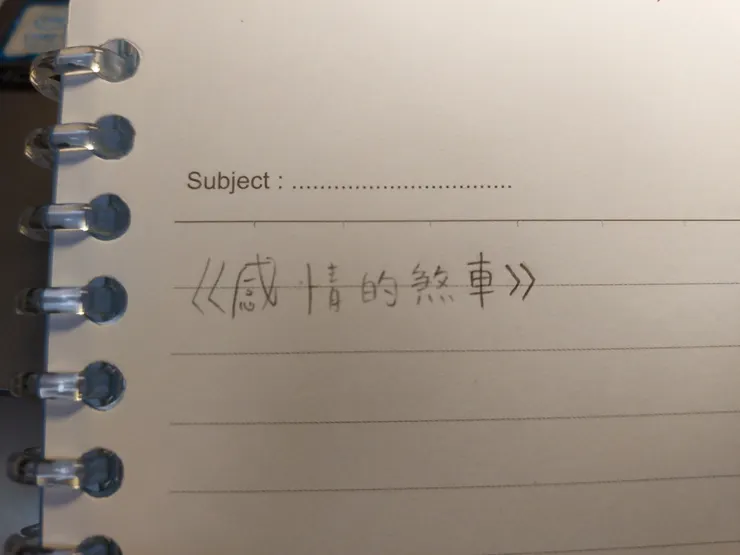 Subject : ................................
《感情的煞車》